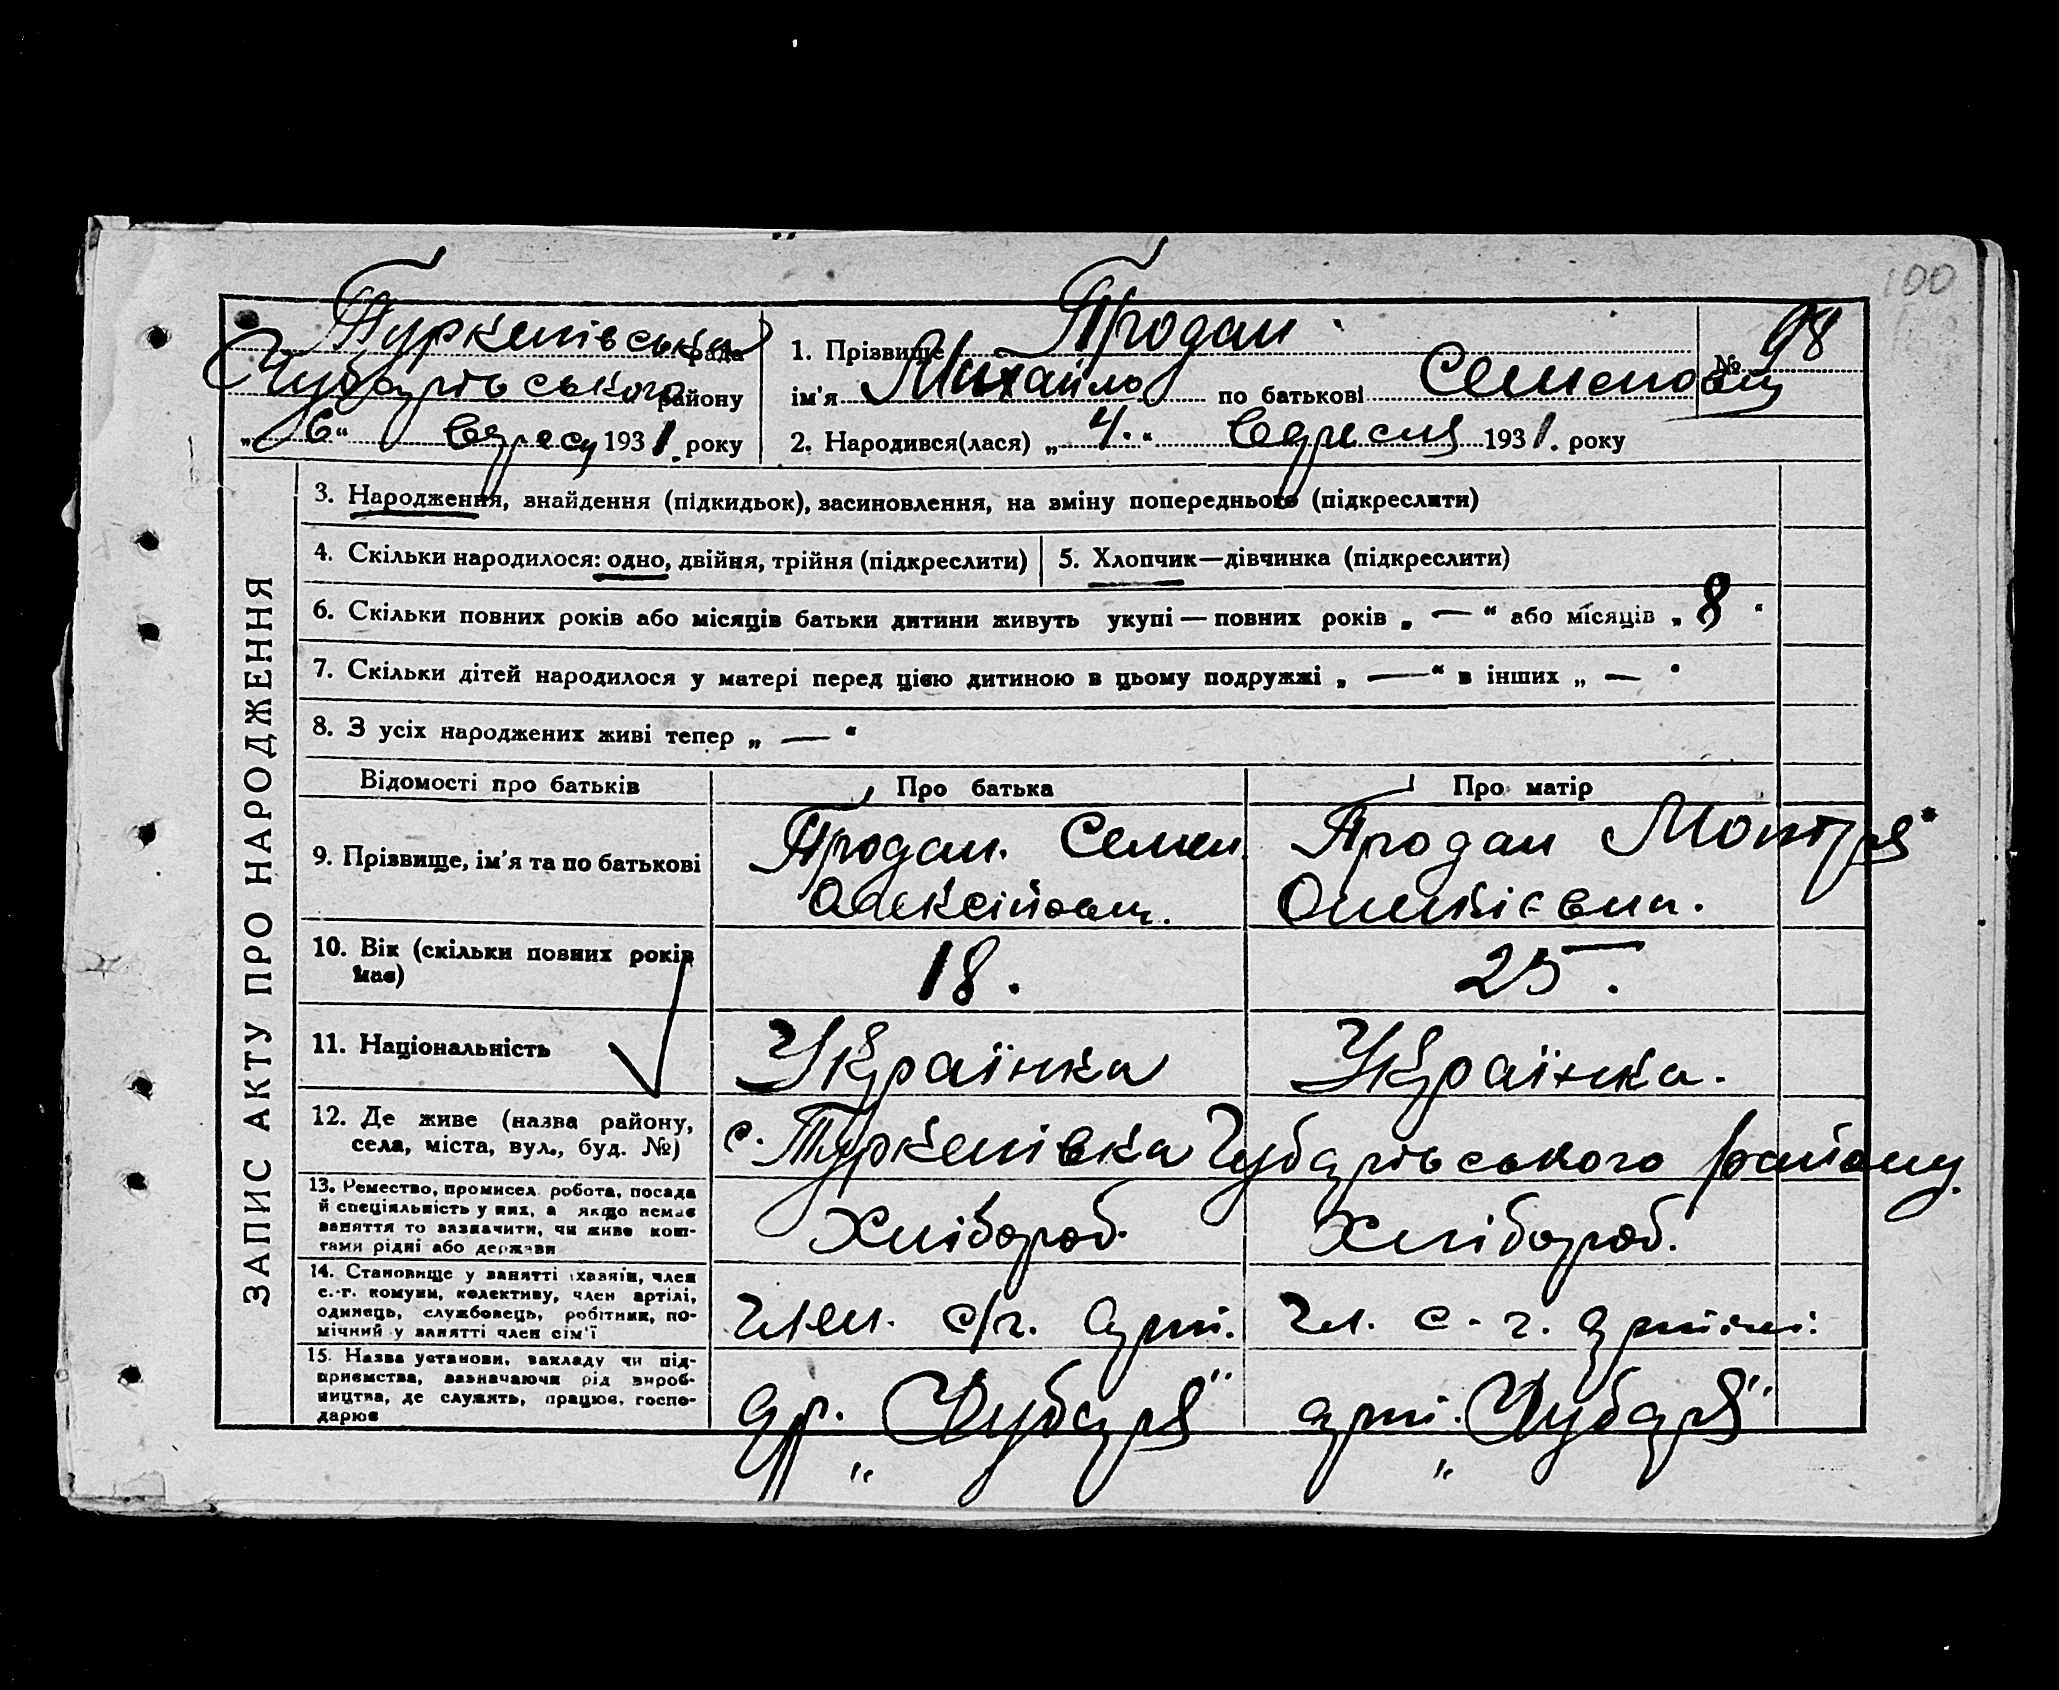 100
Туркенівська рада
Чубарівського району
„6“ вересу 1931. року
1. Прізвище Продан
ім'я Михайло по батькові Семенович
№ 98
2. Народився(лася) „4.“ вересня 1931. року
ЗАПИС АКТУ ПРО НАРОДЖЕННЯ
3. Народження, знайдення (підкидьок), засиновлення, на зміну попереднього (підкреслити)
4. Скільки народилося: одно, двійня, трійня (підкреслити)
5. Хлопчик—дівчинка (підкреслити)
6. Скільки повних років або місяців батьки дитини живуть укупі — повних років „ — “ або місяців „ 8 “
7. Скільки дітей народилося у матері перед цією дитиною в цьому подружжі „ — “ в інших „ — “
8. З усіх народжених живі тепер „ — “
Відомості про батьків Про батька Про матір
9. Прізвище, ім'я та по батькові
Продан. Семен
Олексійович.
Продан Мотря
10. Вік (скільки повних років
має)
18. 25.
11. Національність Українка Українка.
12. Де живе (назва району,
села, міста, вул., буд. №)
с. Туркенівка Чубарівського району.
13. Ремество, промисел робота, посада
й спеціяльність у них, а якщо немає
заняття то зазначити, чи живе кош-
тами рідні або держави
Хлібороб. Хлібороб.
14. Становище у занятті хазяїн, член
с.-г. комуни, колективу, член артілі,
одинець, службовець, робітник, по-
мічний у занятті член сім'ї
член. с/г. арт. чл. с.-г. артілі.
15. Назва установи, закладу чи під-
приємства, зазначаючи рід вироб-
ництва, де служить, працює, госпо-
дарює
ар. „Чубаря“ арт. „Чубаря“